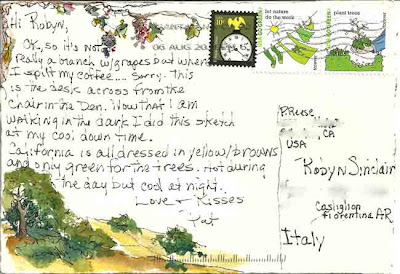 Hi Robyn,
OK, so it's not
really a branch w/grapes but where
I spilt my coffee... Sorry. This
is the desk across from the
Chair in the Den. Now that I am
walking in the dark I did this sketch
at my cool down time.
California is all dressed in yellow/browns
and only green for the trees. Hot during
the day but cool at night.
Love + Kisses
Pat
06 AUG 20
10¢
let nature
do the work
plant trees
P. Reese
CA
USA
Robyn Sinclair
Castiglion
Fiorentino AR
Italy